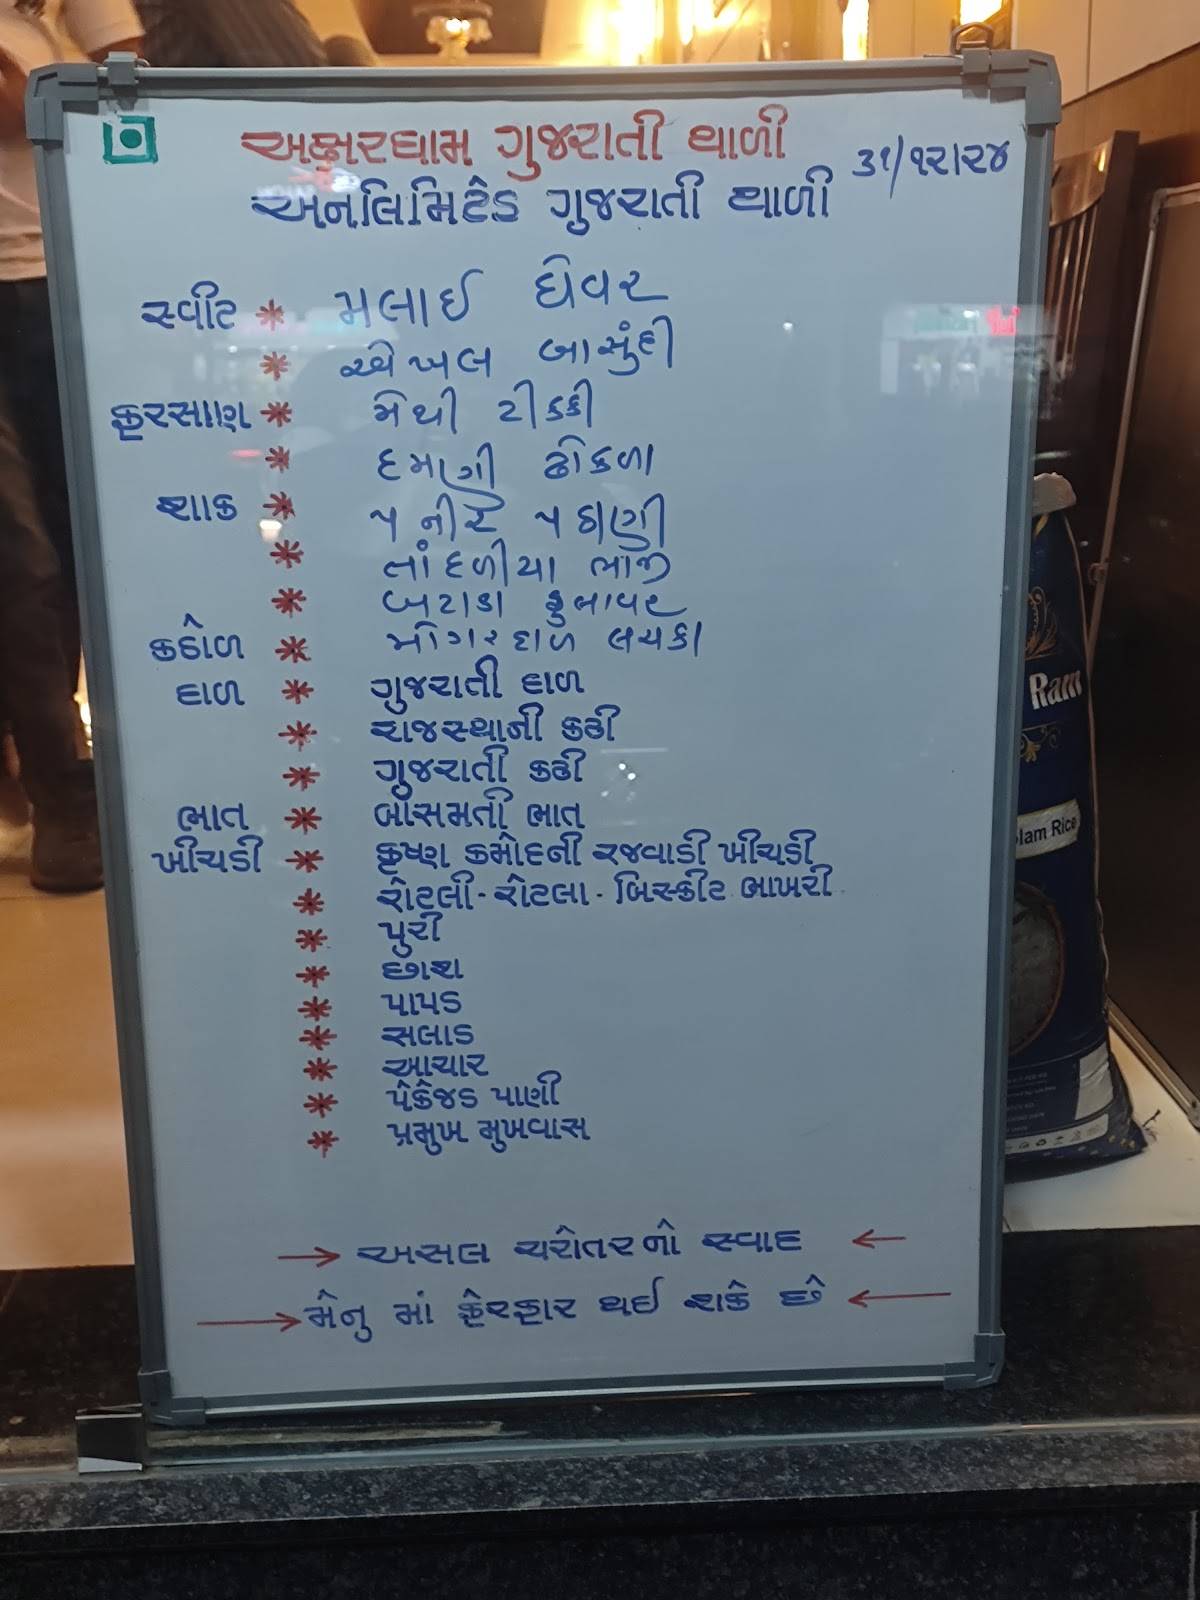 અક્ષરધામ ગુજરાતી થાળી
૩૧/૧૨/૨૪
અનલિમિટેડ ગુજરાતી થાળી
સ્વીટ * મલાઈ ઘેવર
* સ્પેશ્યલ બાસુંદી
ફરસાણ * મેથી ટીકકી
* દમણી ઢોકળા
શાક * પનીર પઠાણી
* તાંદળીયા ભાજી
* બટાડા ફુલાવર
કઠોળ * મોગરદાળ લચકા
દાળ * ગુજરાતી દાળ
* રાજસ્થાની કઢી
* ગુજરાતી કઢી
ભાત * બાસમતી ભાત
ખીચડી * કૃષ્ણ કમોદની રજવાડી ખીચડી
* રોટલી - રોટલા - બિસ્કીટ ભાખરી
* પુરી
* છાશ
* પાપડ
* સલાડ
* આચાર
* પેકેજડ પાણી
* પ્રમુખ મુખવાસ
→ અસલ ચરોતરનો સ્વાદ ←
→ મેનુ માં ફેરફાર થઈ શકે છે ←
Ram
lam Rice